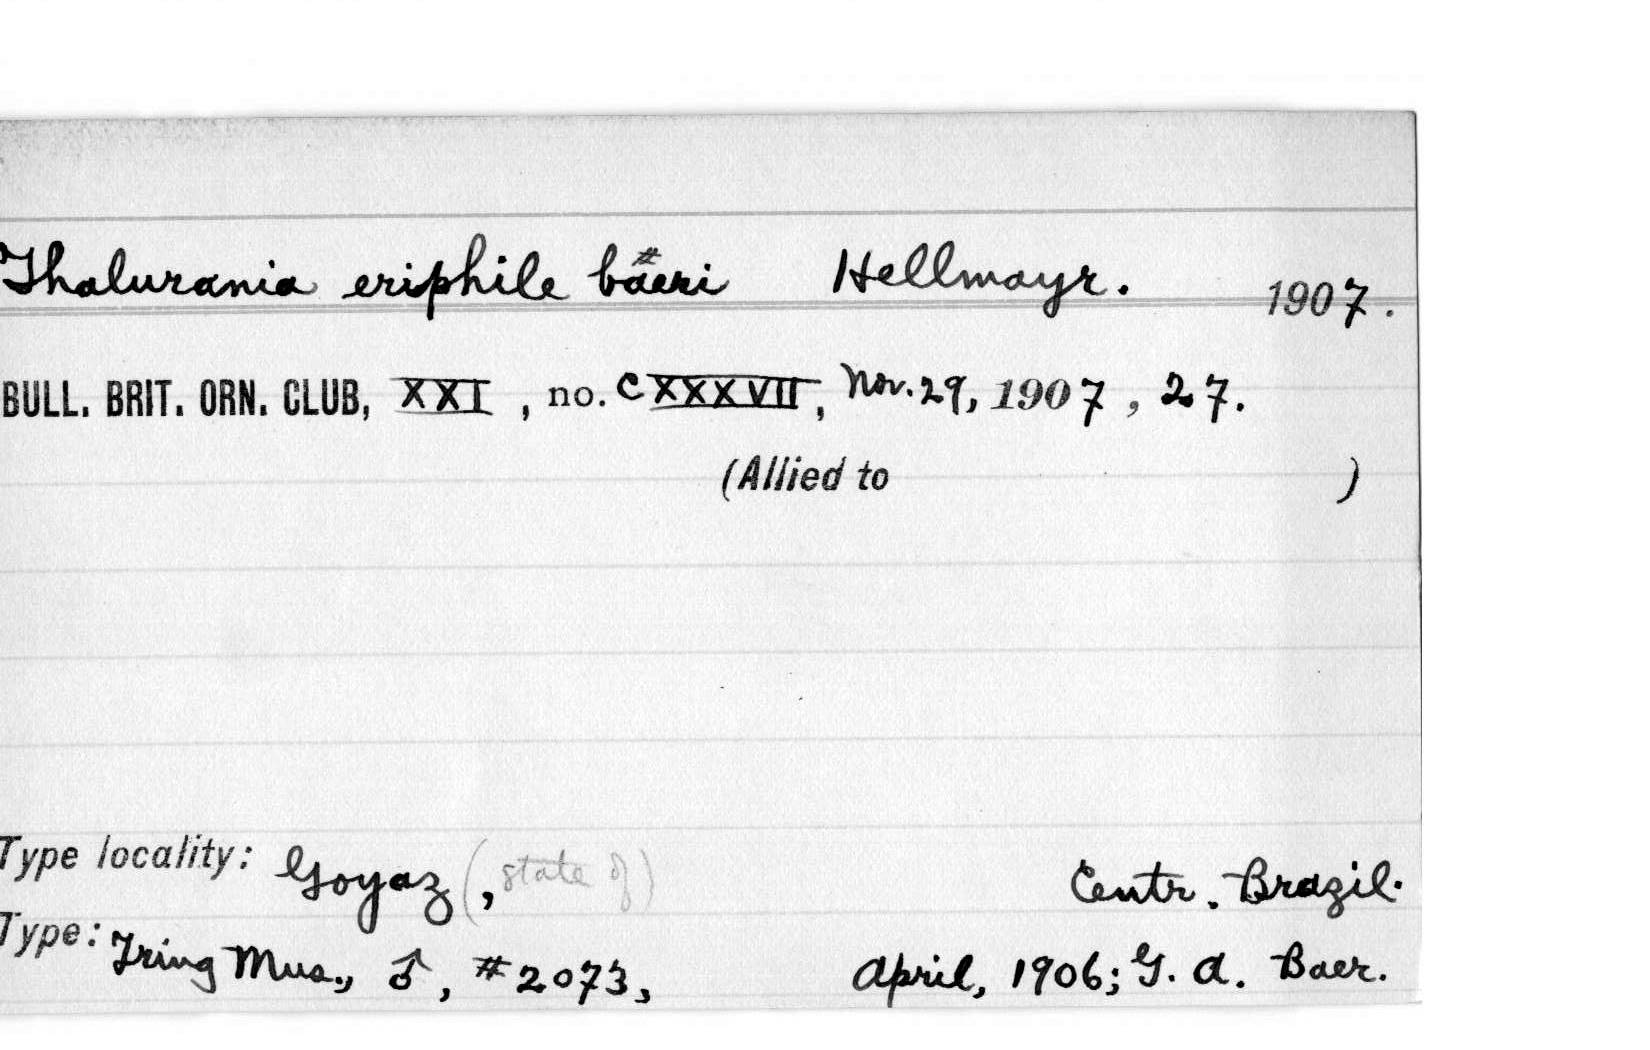 Thalurania eriphile baeri Hellmayr. 1907.
BULL. BRIT. ORN. CLUB, XXI, no. CXXXVII, Nov. 29, 1907, 27.
(Allied to )
Type locality: Goyaz (, state of) Centr. Brazil.
Type: Tring Mus., ♂, #2073, April, 1906; G. A. Baer.